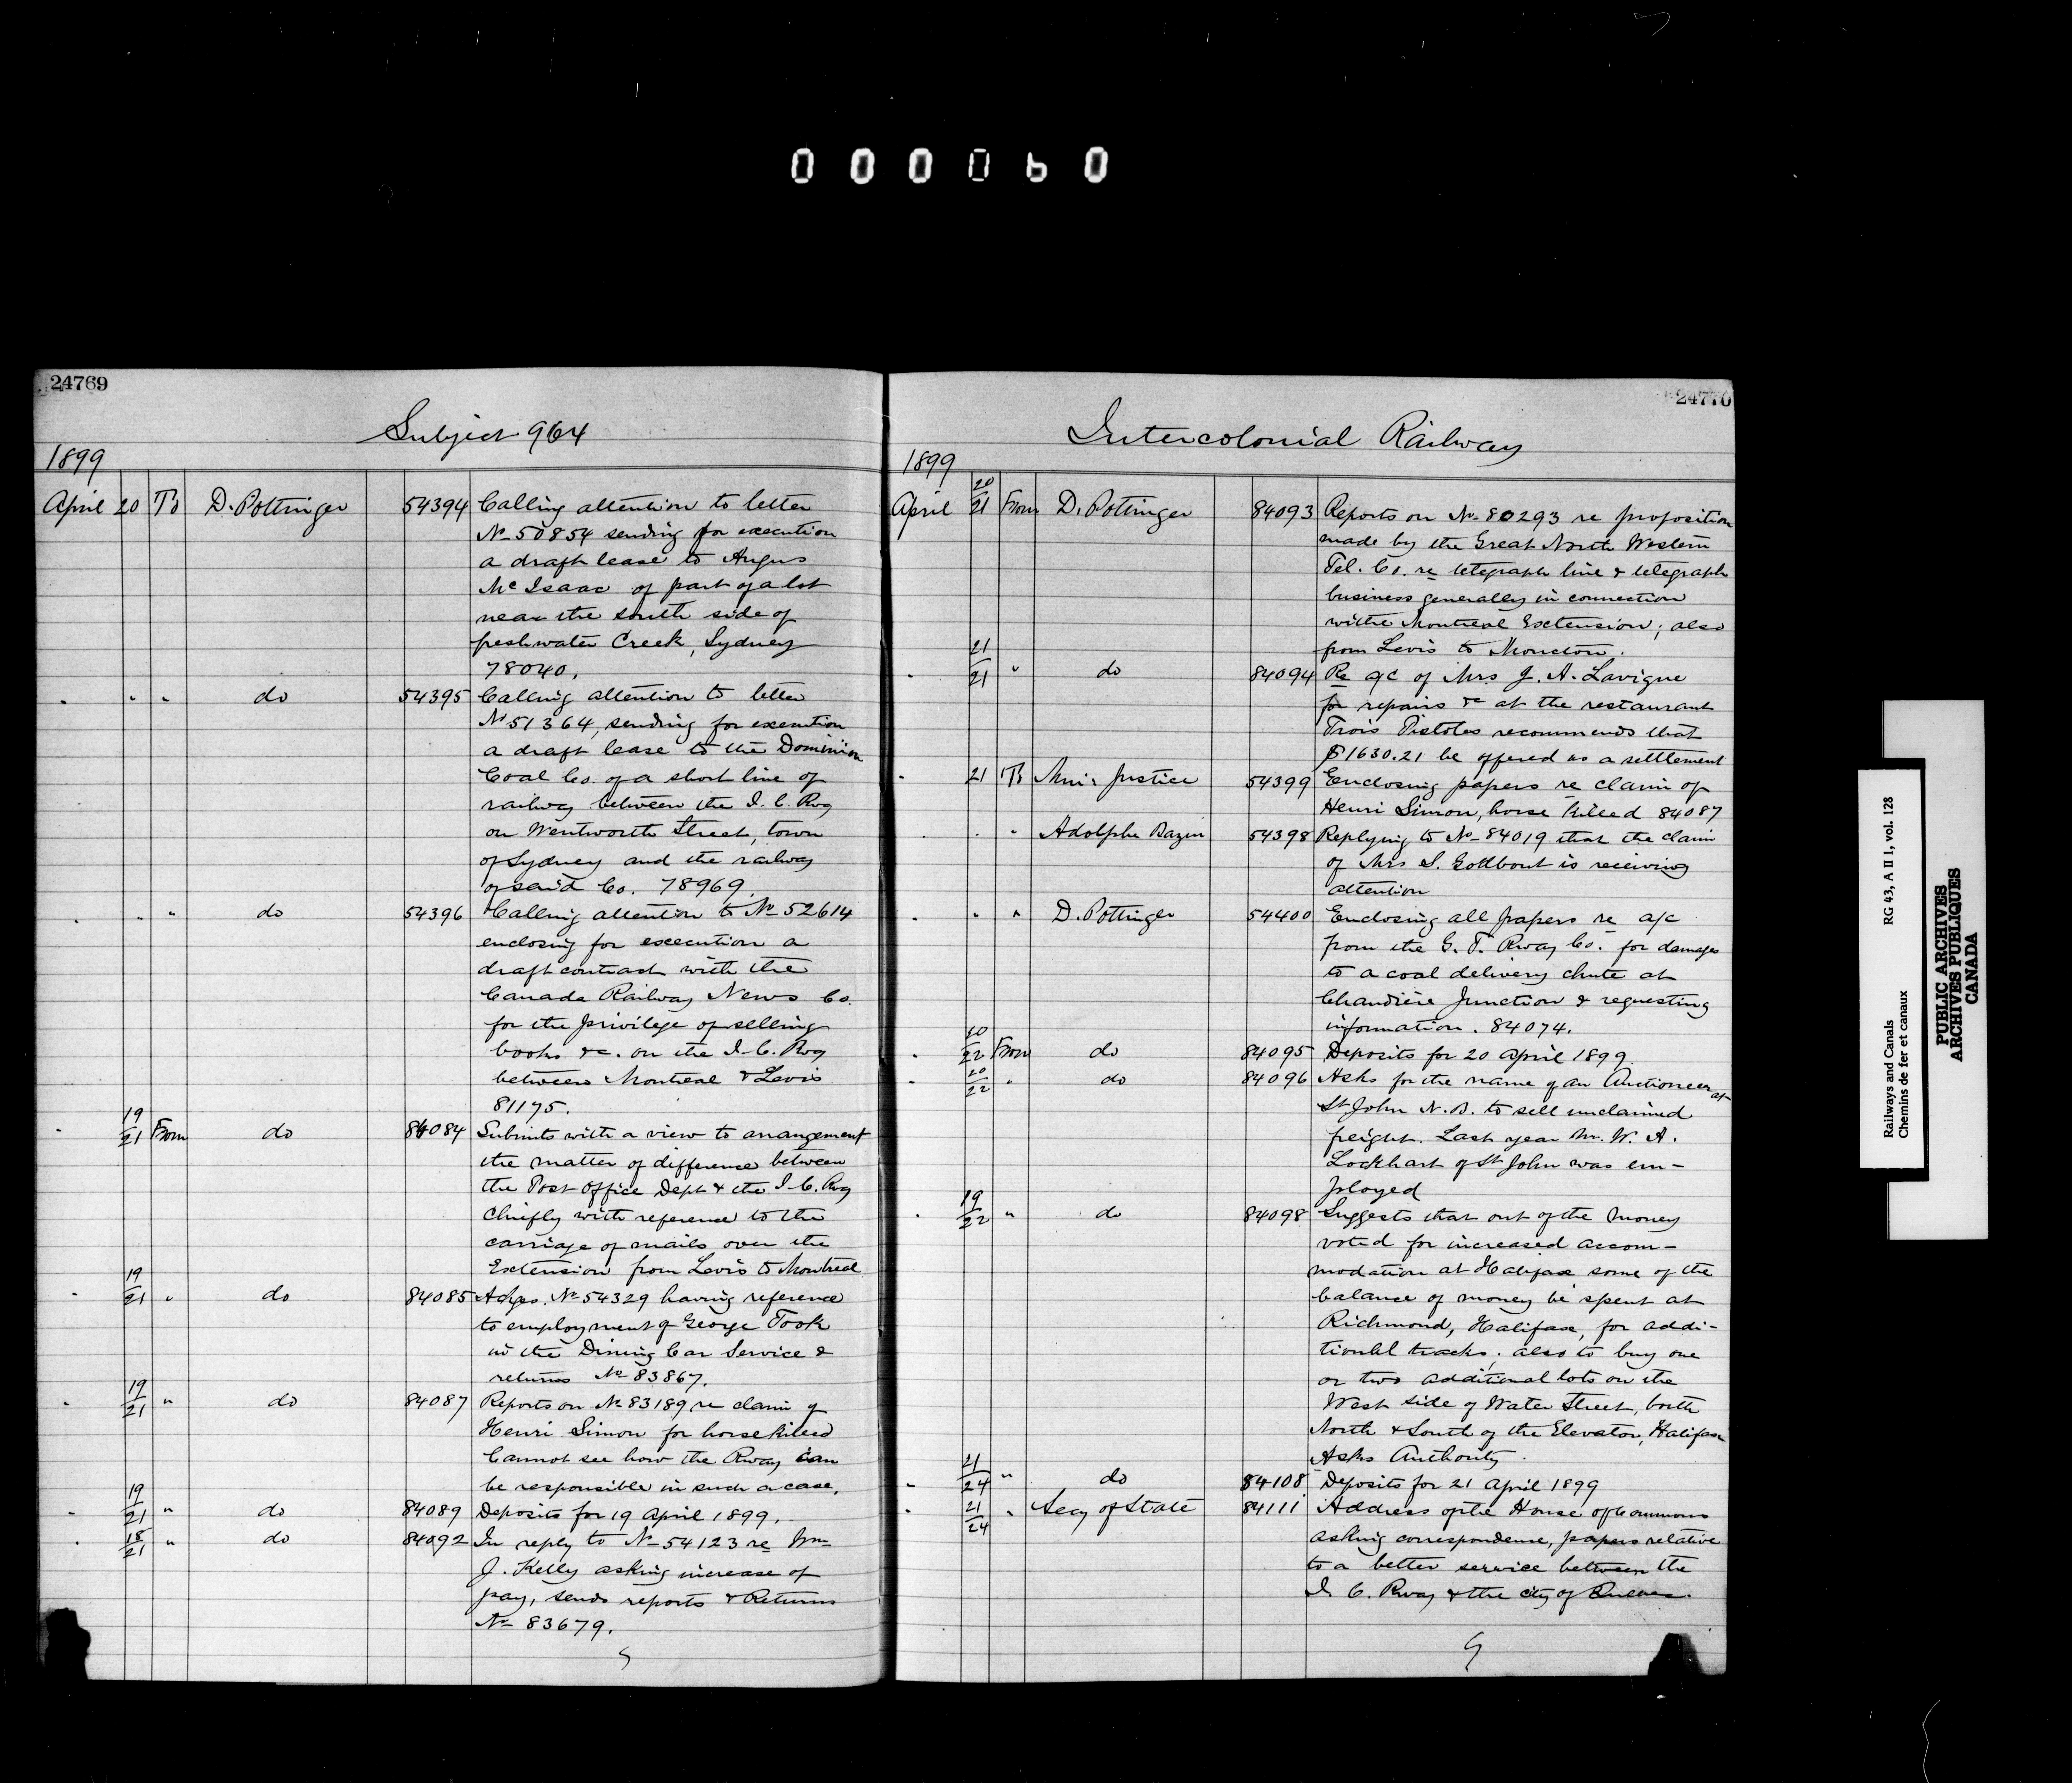 000060
24769
Subject 964
1899
April 20 To D. Pottinger 54394 Calling attention to letter
No 50854 sending for execution
a draft lease to Angus
McIsaac of part of a lot
near the south side of
freshwater Creek, Sydney
78040.
" " " do 54395 Calling attention to letter
No 51364, sending for execution
a draft lease to the Dominion
Coal Co. of a short line of
railway between the I. C. Rwy
on Wentworth Street, town
of Sydney and the railway
of said Co. 78969.
" " " do 54396 Calling attention to No 52614
enclosing for execution a
draft contract with the
Canada Railway News Co.
for the privilege of selling
books &c. on the I. C. Rwy
between Montreal & Levis
81175.
" 19/21 From do 84084 Submits with a view to arrangement
the matter of difference between
the Post Office Dept & the I. C. Rwy
chiefly with reference to the
carriage of mails over the
Extension from Levis to Montreal
" 19/21 " do 84085 Ackgs. No 54329 having reference
to employment of George Took
in the Dining Car Service &
returns No 83867.
" 19/21 " do 84087 Reports on No 83189 re claim of
Henri Simon for horse killed
Cannot see how the Rway can
be responsible in such a case.
" 19/21 " do 84089 Deposits for 19 April 1899.
" 18/21 " do 84092 In reply to No 54123 re Wm
J. Kelly asking increase of
pay, sends reports & Returns
No 83679.
24770
Intercolonial Railway
1899
April 20/21 From D. Pottinger 84093 Reports on No 80293 re proposition
made by the Great North Western
Tel. Co. re telegraph line & telegraph
business generally in connection
with Montreal Extension; also
from Levis to Moncton.
" 21/21 " do 84094 Re a/c of Mrs J. A. Lavigne
for repairs &c at the restaurant
Trois Pistoles recommends that
$1630.21 be offered as a settlement
" 21 To Min. Justice 54399 Enclosing papers re claim of
Henri Simon, horse killed 84087
" " " Adolphe Bazin 54398 Replying to No 84019 that the claim
of Mrs S. Godbout is receiving
attention
" " " D. Pottinger 54400 Enclosing all papers re a/c
from the G. T. Rway Co. for damages
to a coal delivery chute at
Chaudière Junction & requesting
information. 84074.
" 20/22 From do 84095 Deposits for 20 April 1899.
" 20/22 " do 84096 Asks for the name of an Auctioneer at
St John N. B. to sell unclaimed
freight. Last year Mr. W. A.
Lockhart of St John was em-
ployed
" 19/22 " do 84098 Suggests that out of the money
voted for increased accom-
modation at Halifax some of the
balance of money be spent at
Richmond, Halifax, for addi-
tional tracks; also to buy one
or two additional lots on the
West side of Water Street, both
North & South of the Elevator, Halifax
Asks Authority.
" 21/24 " do 84108 Deposits for 21 April 1899
" 21/24 " Secy of State 84111 Address of the House of Commons
asking correspondence, papers relative
to a better service between the
I. C. Rway & the city of Quebec.
Railways and Canals RG 43, A II 1, vol. 128
Chemins de fer et canaux
PUBLIC ARCHIVES
ARCHIVES PUBLIQUES
CANADA